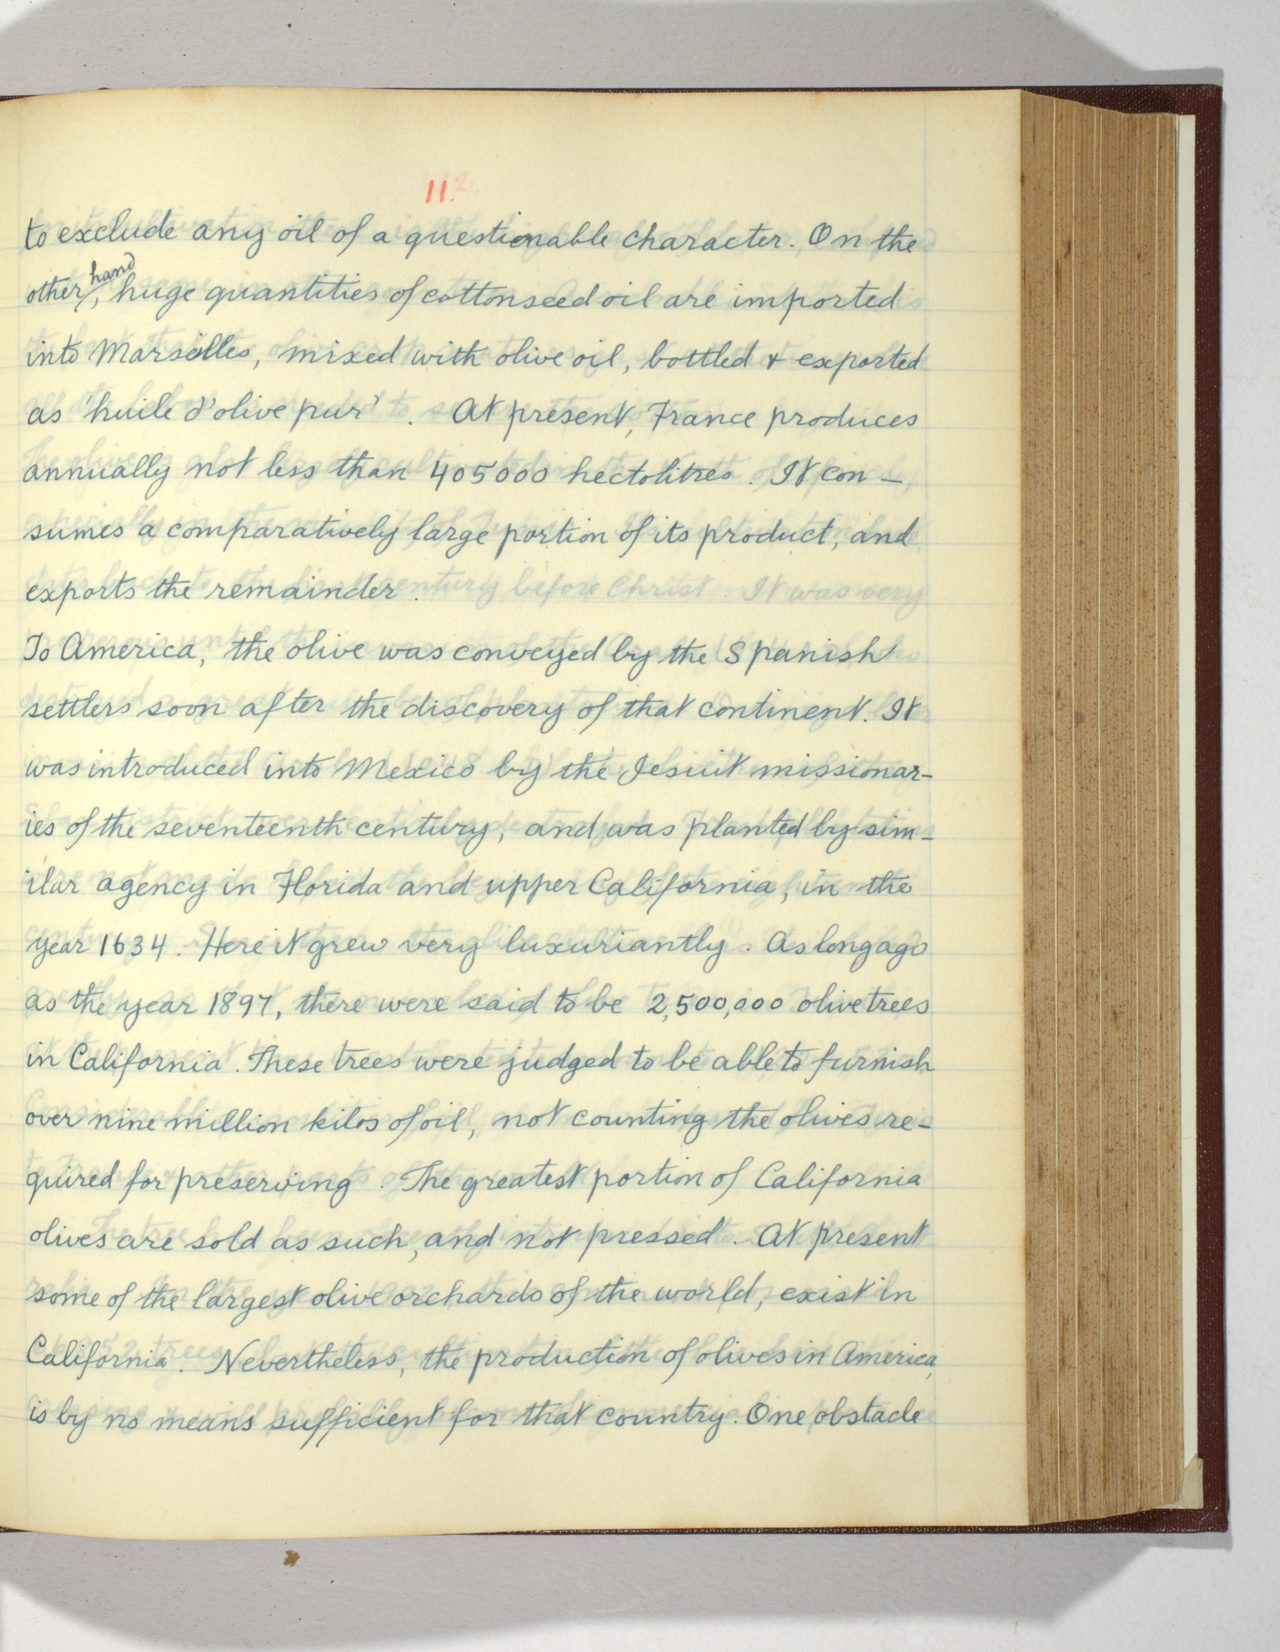 11.
to exclude any oil of a questionable character. On the
other hand, huge quantities of cottonseed oil are imported
into Marseilles, mixed with olive oil, bottled & exported
as 'huile d'olive pur'. At present, France produces
annually not less than 405000 hectolitres. It con-
sumes a comparatively large portion of its product, and
exports the remainder.
To America, the olive was conveyed by the Spanish
settlers soon after the discovery of that continent. It
was introduced into Mexico by the Jesuit missionar-
ies of the seventeenth century, and was planted by sim-
ilar agency in Florida and upper California, in the
year 1634. Here it grew very luxuriantly. As long ago
as the year 1897, there were said to be 2,500,000 olive trees
in California. These trees were judged to be able to furnish
over nine million kilos of oil, not counting the olives re-
quired for preserving. The greatest portion of California
olives are sold as such, and not pressed. At present
some of the largest olive orchards of the world, exist in
California. Nevertheless, the production of olives in America,
is by no means sufficient for that country. One obstacle